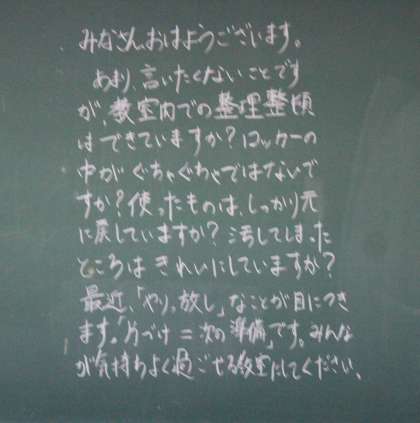 みなさん、おはようございます。
あまり、言いたくないことです
が、教室内での整理整頓
はできていますか?ロッカーの
中がぐちゃぐちゃではないで
すか?使ったものは、しっかり元
に戻していますか?汚してしまった
ところはきれいにしていますか?
最近、「やりっ放し」なことが目につき
ます。「片づけ=次の準備」です。みんな
が気持ちよく過ごせる教室にしてください。